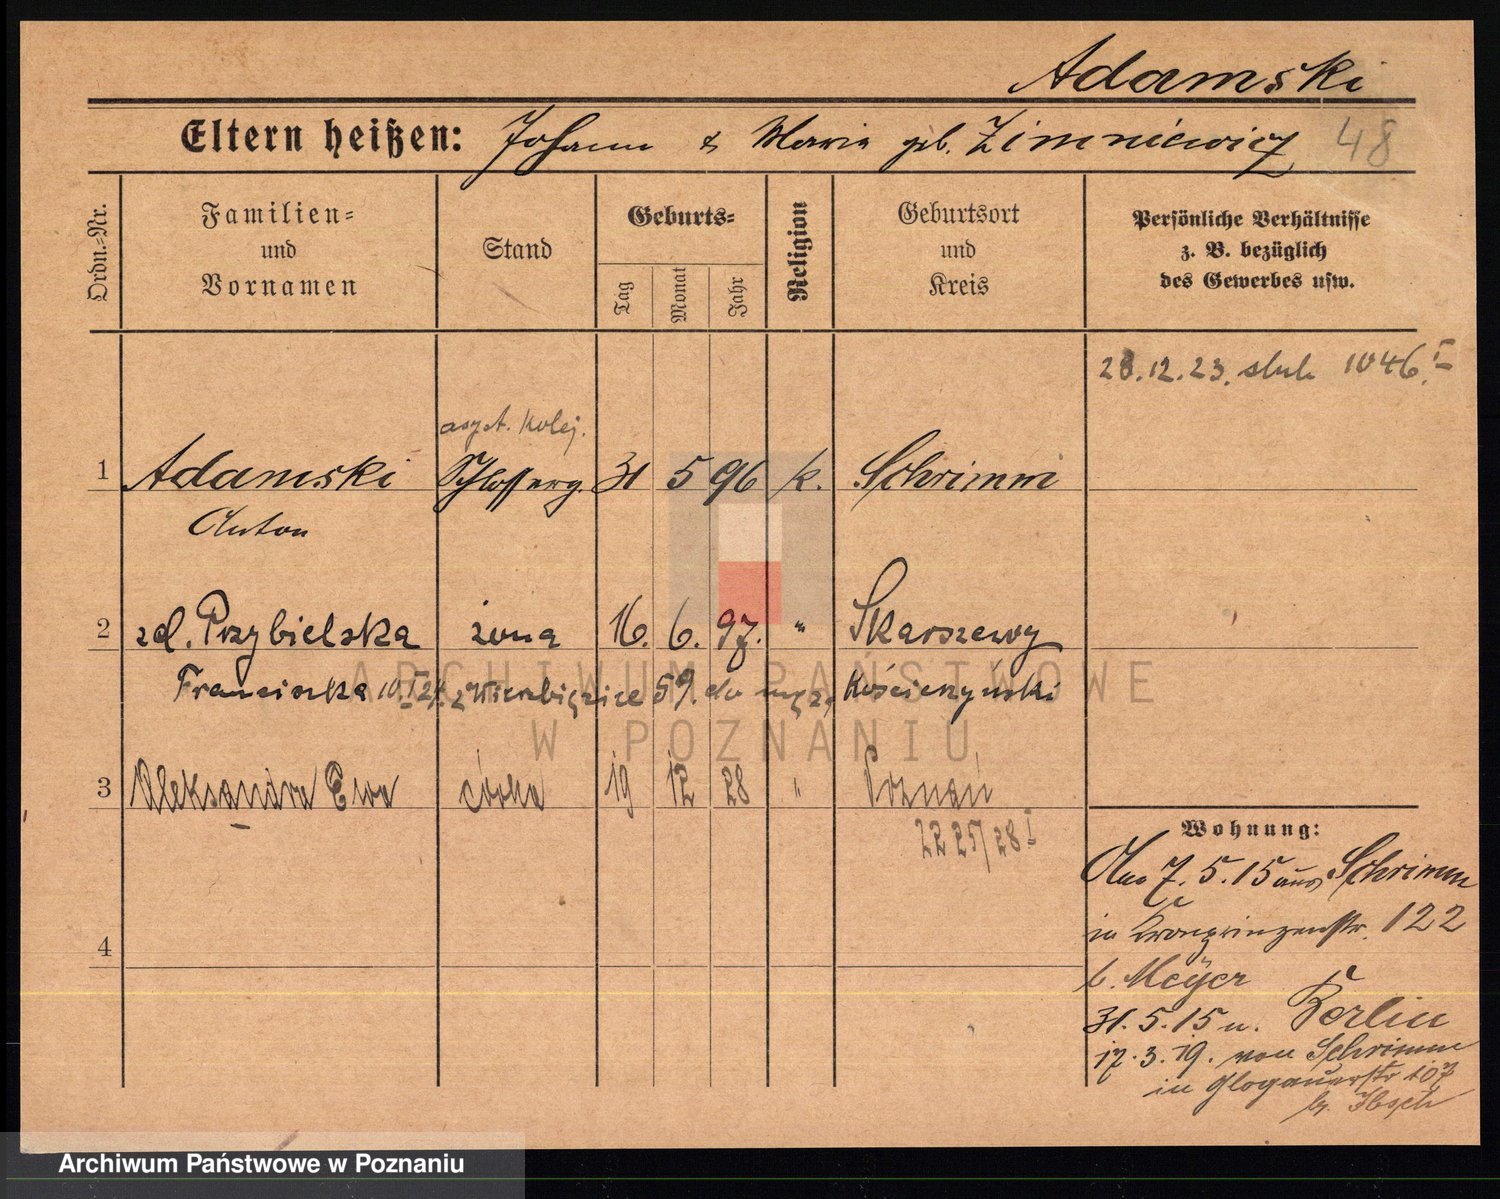 Adamski
Eltern heißen: Johann & Maria geb. Zimniewicz 48
Ordn.-Nr.
Familien- und Vornamen
Stand
Geburts-
Tag
Monat
Jahr
Religion
Geburtsort und Kreis
Persönliche Verhältnisse
z. B. bezüglich
des Gewerbes usw.
28.12.23. ślub 1046.I
asyst. kolej.
1 Adamski Schlosserg. 31 5 96 k. Schrimm
Anton
2 zd. Przybielska żona 16. 6. 97. " Skarszewy
Franciszka 10.I 24. z Wierzbięcice 59. do męża Kościerzyński
3 Aleksandra Ewa córka 19 12 28 " Poznań
2225/28 I
4
Wohnung:
Am 7. 5. 15 aus Schrimm
in Kronprinzenstr. 122
b. Meyer
31. 5. 15 n. Berlin
17. 3. 19. von Schrimm
in Glogauerstr 107
b.
ARCHIWUM PAŃSTWOWE
W POZNANIU
Archiwum Państwowe w Poznaniu